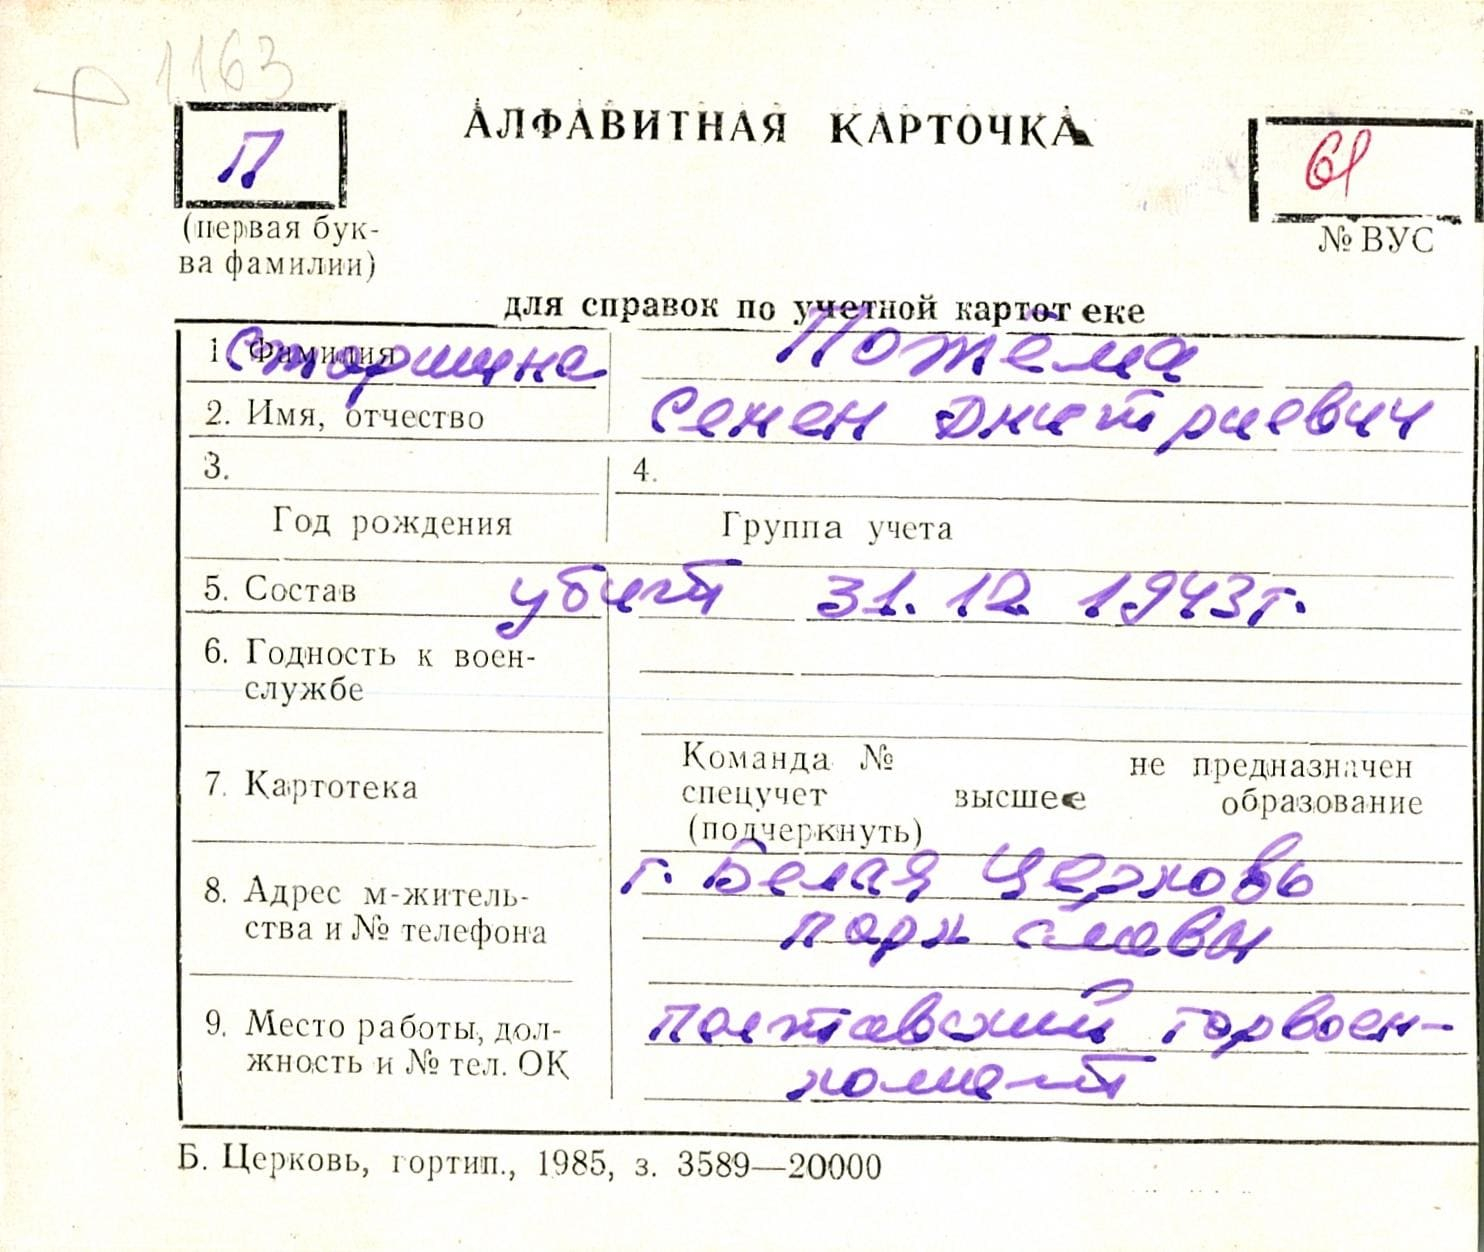 1163
АЛФАВИТНАЯ КАРТОЧКА
П
61
(первая бук-
ва фамилии)
№ ВУС
для справок по учетной картотеке
1. Фамилия
старшина Потема
2. Имя, отчество Семен Дмитриевич
3. 4.
Год рождения Группа учета
5. Состав убит 31.12.1943г.
6. Годность к воен-
службе
7. Картотека
Команда № не предназначен
спецучет высшее образование
(подчеркнуть)
8. Адрес м-житель-
ства и № телефона
г. Белая Церковь
парк славы
9. Место работы, дол-
жность и № тел. ОК
полтавский горвоен-
комат
Б. Церковь, гортип., 1985, з. 3589—20000